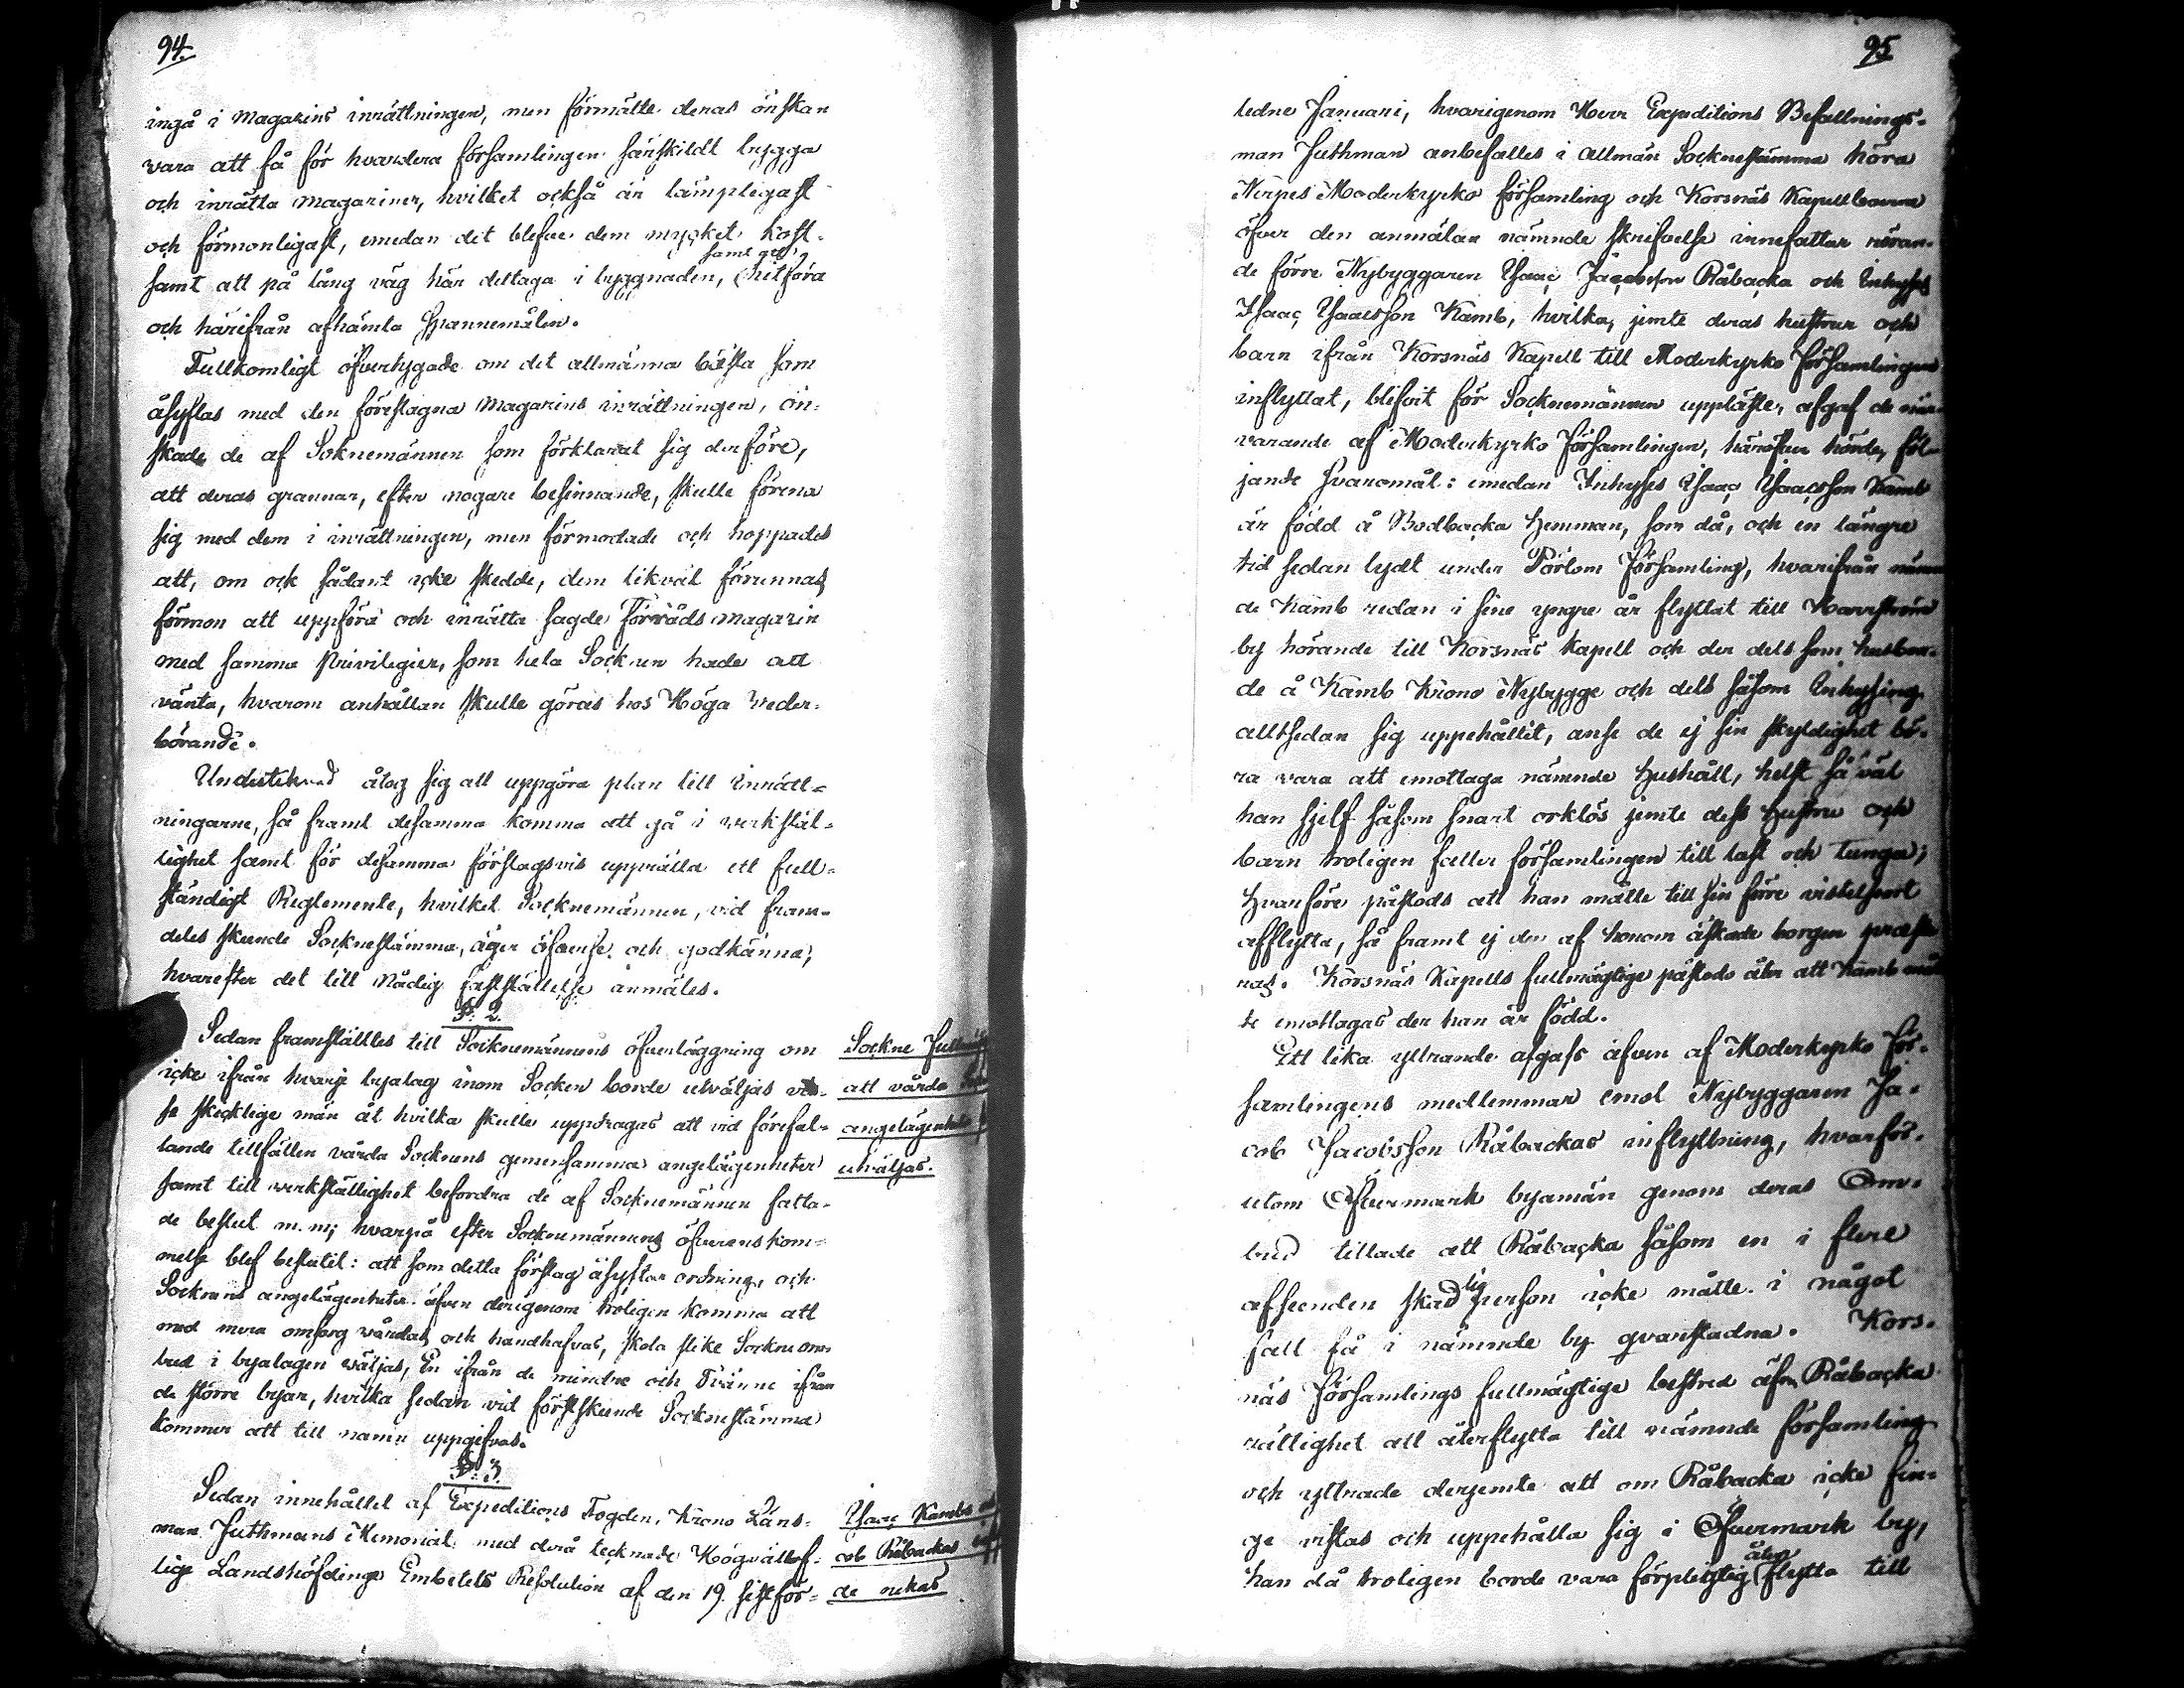 94.
ingå i Magazins inrättningen, men förmälte deras önskan
vara att få för hvardera församlingen särskildt bygga
och inrätta magaziner, hvilket också är lämpligast
och förmonligast, emedan det blefve dem mycket kost-
samt att på lång väg här deltaga i byggnaden, hitföra
och härifrån afhämta Spannemålen.
Fullkomligt öfvertygade om det allmänna bästa som
åsyftas med den föreslagna Magazins inrättningen, ön-
skade de af Soknemännen som förklarat sig derföre,
att deras grannar, efter nogare besinnande, skulle förena
sig med dem i inrättningen, men förmodade och hoppades
att, om ock sådant icke skedde, dem likväl förunnas
förmon att uppföra och inrätta sagde Förråds magazin
med samma Privilegier, som hela Socknen hade att
vänta, hvarom anhållan skulle göras hos Höga Veder-
börande.
Undertecknad åtog sig att uppgöra plan till Inrätt-
ningarne, så framt desamma komma att gå i verkstäl-
lighet samt för desamma förslagsvis upprätta ett full-
ständigt Reglemente, hvilket Socknemännen, vid fram-
deles skeende Socknestämma, äger öfverse och godkänna;
hvarefter det till Nådig fastställelse anmäles.
§. 2.
Sedan framställtes till Socknemännens öfverläggning om
icke ifrån hvarje byalag inom Socken borde utväljas vis-
se skicklige män åt hvilka skulle uppdragas att vid förefal-
lande tillfällen vårda Socknens gemensamma angelägenheter
samt till verkställighet befordra de af Socknemännen fatta-
de beslut m.m; hvarpå efter Socknemännens öfverenskom-
melse blef beslutit: att som detta förslag åsyftar ordning, och
Socknens angelägenheter äfven derigenom troligen komma att
med mera omsorg vårdas och handhafvas, skola slike Sockne om-
bud i byalagen väljas, En ifrån de mindre och Tvänne ifrån
de större byar, hvilka sedan vid först skeende Socknestämma
kommer att till namn uppgifvas.
Sockne
att vårda
angelägenheter
utväljas.
§. 3.
Sedan innehållet af Expeditions Fogden, Krono Läns-
man Juthmans Memorial med derå tecknade Högvällof-
lige Landshöfdinge Embetets Resolution af den 19. sistför-
Isaac Kambs
cob Råbackas
de nekas
95
ledne Januari, hvarigenom Herr Expeditions Befallnings-
man Juthman anbefalles i allmän Socknestämma höra
Nerpes Moderkyrko församling och Korsnäs Kapellboerna
öfver den anmälan nämnde skrifvelse innefattar röran-
de förre Nybyggaren Isaac Jacobsson Råbacka och Inhyses
Isaac Isaacsson Kamb, hvilka, jemte deras hustrur och
barn ifrån Korsnäs Kapell till Moderkyrko Församlingen
inflyttat, blifvit för Socknemännen uppläste, afgaf de när-
varande af Moderkyrko Församlingen, häröfver hörde, föl-
jande svaromål: emedan Inhyses Isaac Isaacsson Kamb
är född å Bodbacka Hemman, som då, och en längre
tid sedan lydt under Pörtom Församling, hvarifrån nämn
de Kamb redan i sine yngre år flyttat till Harrström
by hörande till Korsnäs Kapell och der dels som husbon-
de å Kamb Krono Nybygge och dels såsom Inhysing
alltsedan sig uppehållit, anse de ej sin skyldighet bö-
ra vara att emottaga nämnde Hushåll, helst så väl
han sjelf såsom snart orklös jemte dess Hustru och
barn troligen faller församlingen till last och tunga;
Hvarföre påstods att han måtte till sin förre vistelseort
afflytta, så framt ej den af honom äskade borgen præste
ras. Korsnäs Kapells fullmägtige påstods åter att Kamb
te emottagas der han är född.
Ett lika yttrande afgafs äfven af Moderkyrko För-
samlingens medlemmar emot Nybyggaren Ja-
cob Jacobsson Råbackas inflyttning, hvarför-
utom Öfvermark byamän genom deras Om-
bud tillade att Råbacka såsom en i flere
afseenden skadlig person icke måtte i något
fall få i nämnde by qvarstadna. Kors-
näs Församlings fullmägtige bestred äfven Råbacka
rättighet att återflytta till nämnde församling
och yttrade derjemte att om Råbacka icke fin-
ge vistas och uppehålla sig i Öfvermark by,
han då troligen borde vara förpligtig åter flytta till